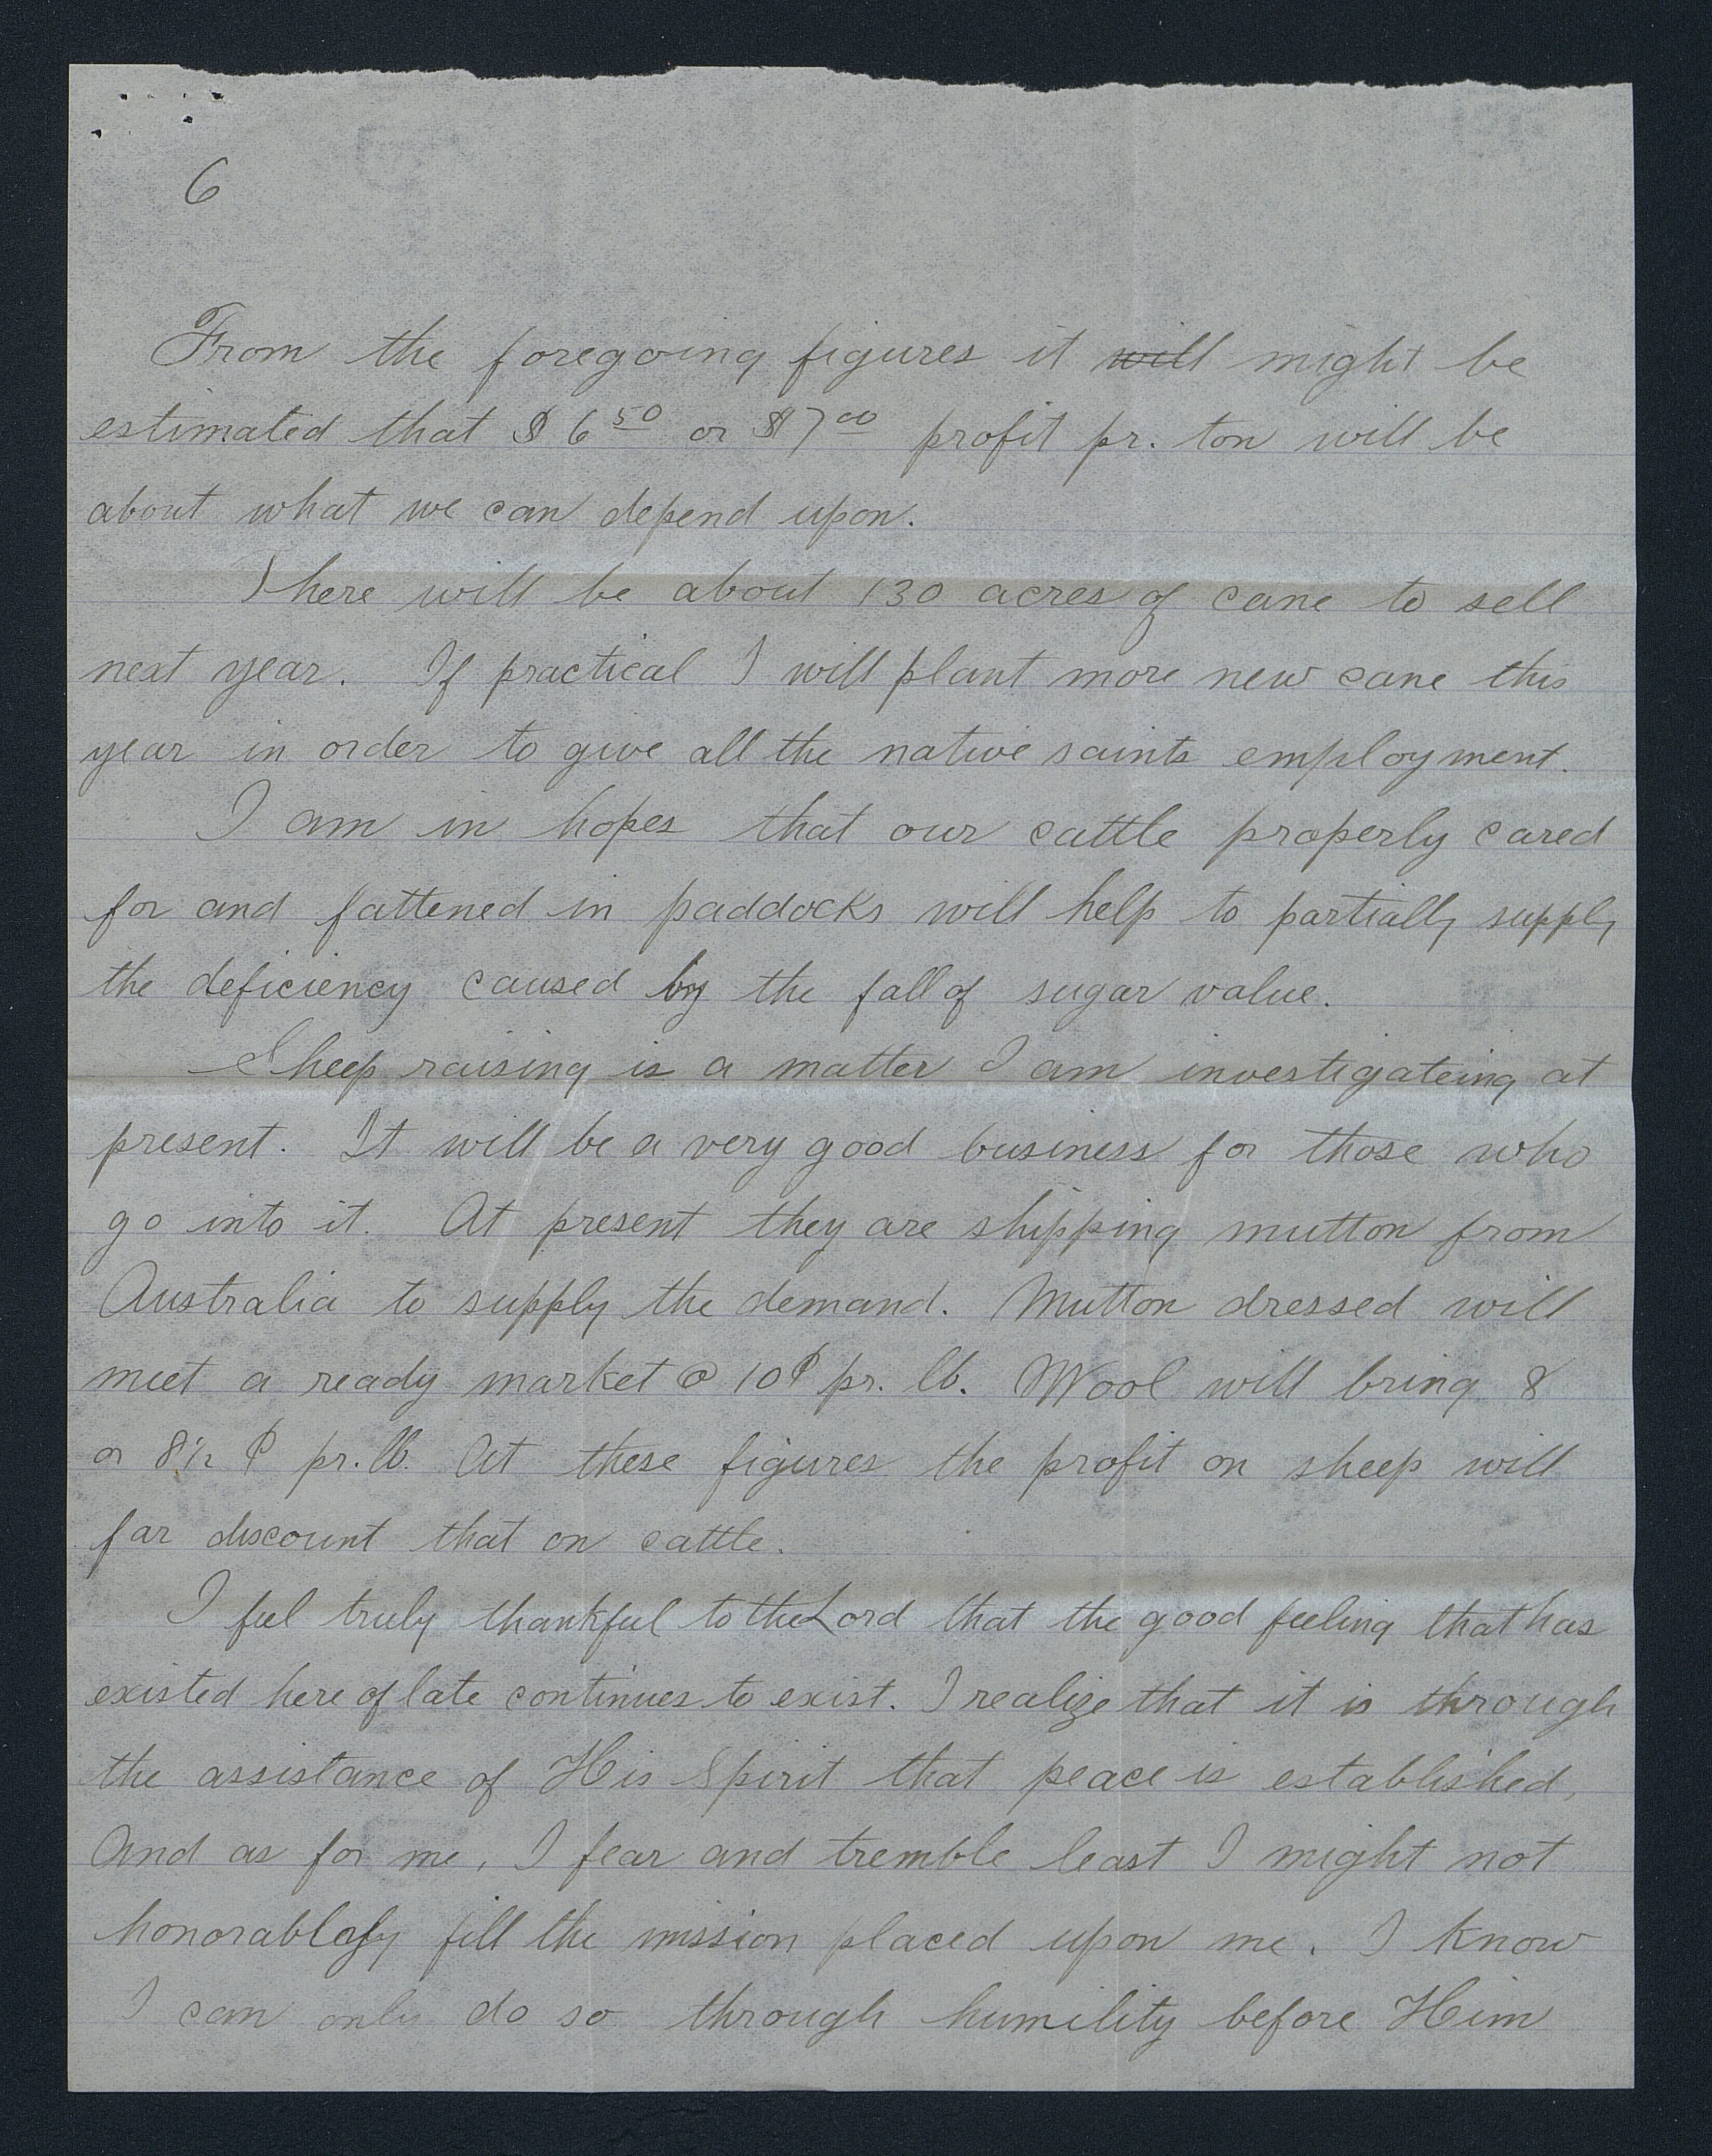 6
From the foregoing figures it will might be
estimated that $6 50 or $7 00 profit pr. ton will be
about what we can depend upon.
There will be about 130 acres of cane to sell
next year. If practical I will plant more new cane this
year in order to give all the native saints employment.
I am in hopes that our cattle properly cared
for and fattened in paddocks will help to partially supply
the deficiency caused by the fall of sugar value.
Sheep raising is a matter I am investigateing at
present. It will be a very good business for those who
go into it. At present they are shipping mutton from
Australia to supply the demand. Mutton dressed will
meet a ready market @ 10¢ pr. lb. Wool will bring 8
or 8½ ¢ pr. lb. At these figures the profit on sheep will
far discount that on cattle.
I feel truly thankful to the Lord that the good feeling that has
existed here of late continues to exist. I realize that it is through
the assistance of His Spirit that peace is established,
And as for me, I fear and tremble least I might not
honorably fill the mission placed upon me. I know
I can only do so through humility before Him